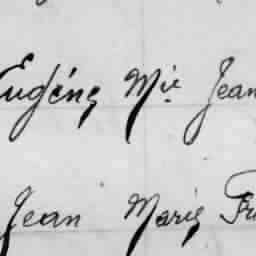 Eugène Mie Jean
Jean Marie